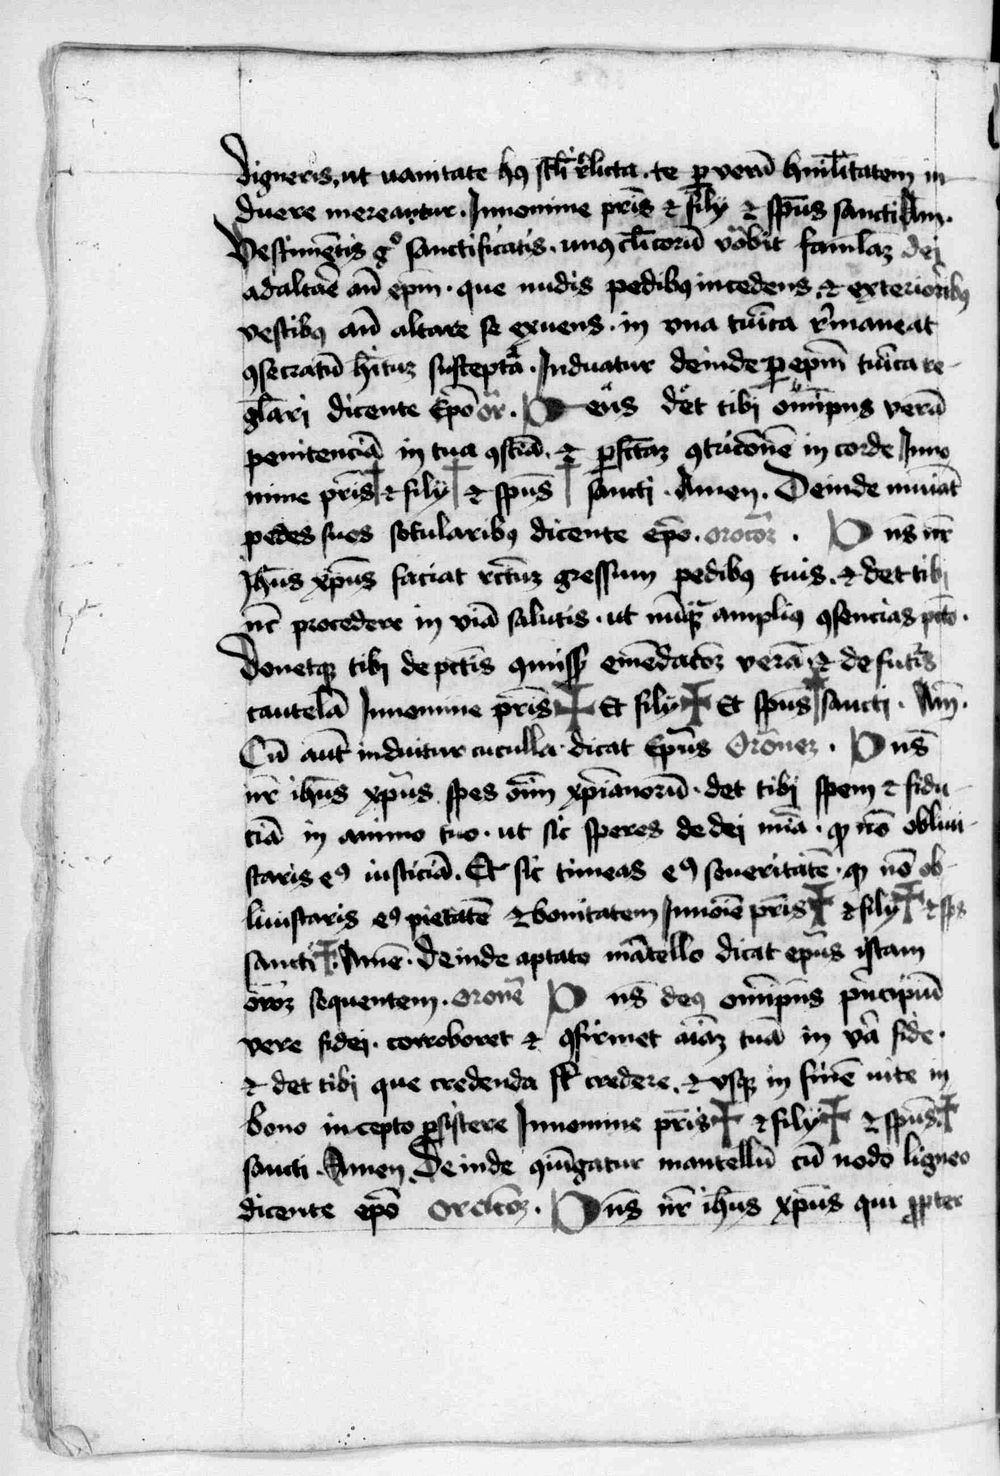 digneris, ut uanitate hꝰ scƚi rͥlicta. te ꝑ verā hu̅ilitatem in
duere mereantur. Innomine pr̄is ⁊ filij ⁊ sp̄us sancti Am̄.
Vestimētis gͦ sanctificatis. unꝰ cƚicorū vocabit famulaꝫ dei
ad altāe an̄ ep̄m. que nudis pedibꝰ incedens, ⁊ exterioribꝰ
vestibꝰ an̄ altare se exuens. in vna tu̅ica rͥmaneat
ꝯsecratū h̄ituꝫ susceptͣa. Induatur deinde ꝑ ep̄m tu̅ica re-
gƚari dicente Ep̄o or̄. Deus det tibi om̄ipn̄s verā
penitenciā in tua ꝯsciā. ⁊ ꝑfcāꝫ ꝯtric̄onē in corde Inno
mine pr̄is † ⁊ filij † ⁊ sp̄us † sancti. Amen. Deinde muniat
pedes suos sotularibꝰ dicente ep̄o. orōeꝫ. Dn̄s nr̄
Ih̄us xp̄us faciat rctūꝫ gressum pedibꝰ tuis, ⁊ det tibi
nc̄ procedere in viā salutis. ut nu̅qͣꝫ ampliꝰ ꝯsencias pc̄to.
Donetqꝫ tibi de pc̄tis ꝯmissꝭ emēdac̄oꝫ verā ⁊ de futuris
cautelā Innomine pr̄is ✠ Et filij ✠ Et sp̄us ✠ sancti. Am̄.
Cū aut̄ induitur cuculla dicat Ep̄us Oroneꝫ. Dn̄s
nr̄ ih̄us xp̄us spes om̄m xp̄ianorū. det tibi spem ⁊ fidu-
ciā in animo tuo. ut sic speres de dei mi̅a. ꝙ nō obliui-
scaris eꝰ iusticiā. Et sic timeas eꝰ seueritatē. ꝙ nō ob-
liuiscaris eꝰ pietatē ⁊ bonitatem Innoīe pr̄is ✠ ⁊ filij ✠ ⁊ sp̄s
sancti ✠. Amē. Deinde aptato mātello dicat ep̄us istam
or̄oꝫ sequentem. Oronē Dn̄s deꝰ om̄ipn̄s pͥncipiū
vere fidei. corroboret ⁊ ꝯfirmet ai̅aꝫ tuā in vͣa fide.
⁊ det tibi que credenda sꝭ credere, ⁊ vsqꝫ in finē uite in
bono incepto ꝑsistere Innomine pr̄is ✠ ⁊ filij ✠ ⁊ sp̄us ✠
sancti. Amen. Deinde ꝯiu̅gatur mantellū cū nodo ligneo
dicente ep̄o Orac̄oꝫ. Dn̄s nr̄ ih̄us xp̄us qui ꝓpter